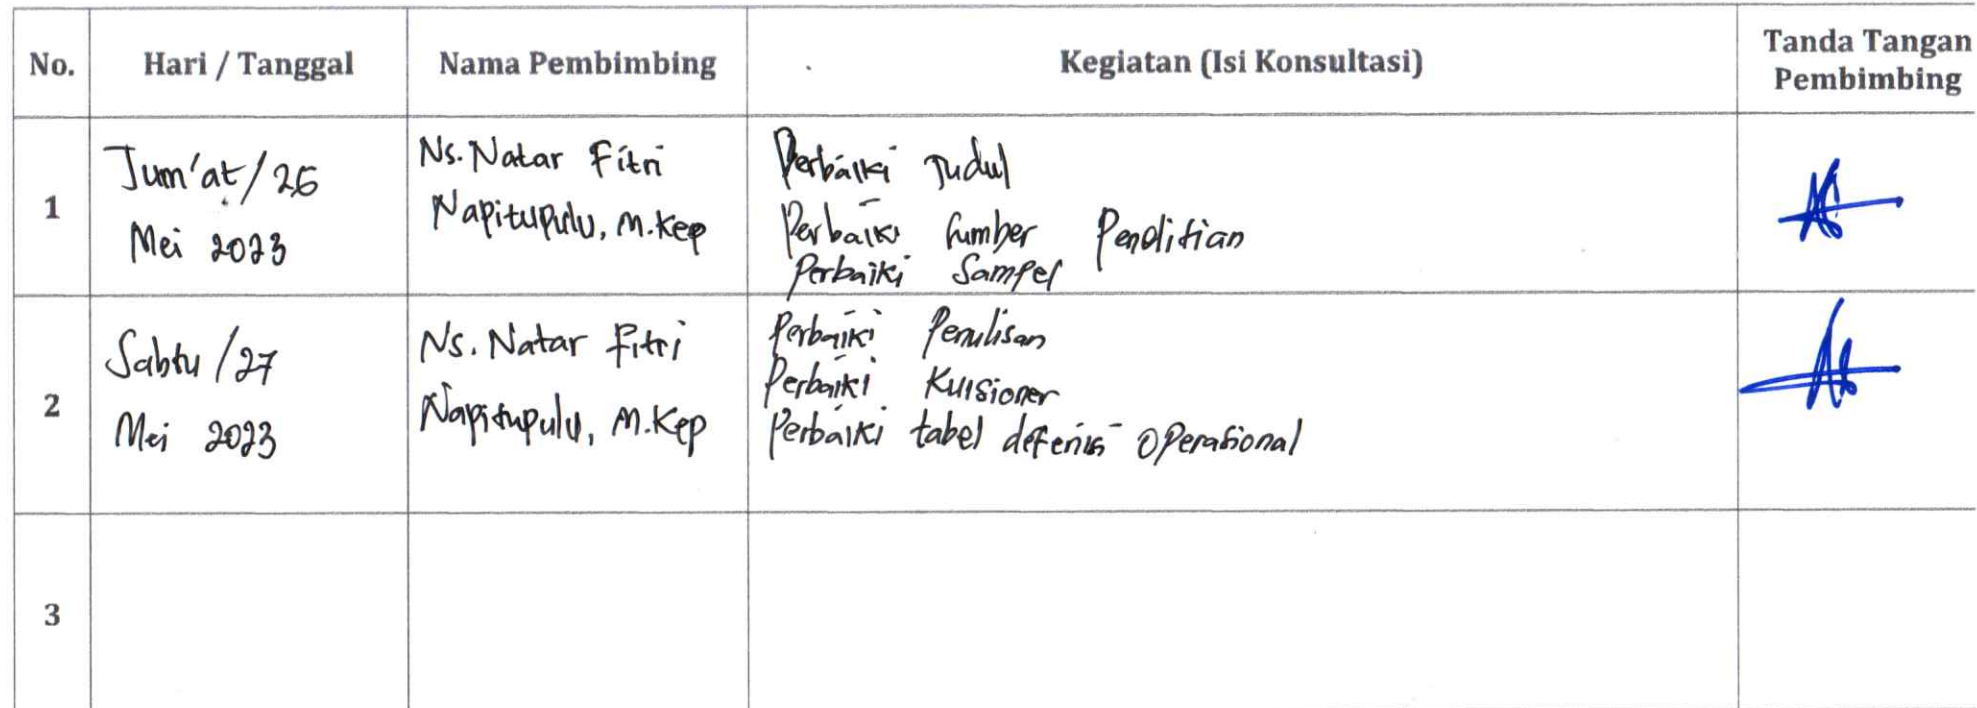 No.
Hari / Tanggal
Nama Pembimbing
Kegiatan (Isi Konsultasi)
Tanda Tangan
Pembimbing
1
Jum'at / 26
Mei 2023
Ns. Natar Fitri
Napitupulu, M.Kep
Perbaiki Judul
Perbaiki Sumber Penelitian
Perbaiki Sampel
2
Sabtu / 27
Mei 2023
Ns. Natar Fitri
Napitupulu, M.Kep
Perbaiki Penulisan
Perbaiki Kuisioner
Perbaiki tabel defenisi Operasional
3